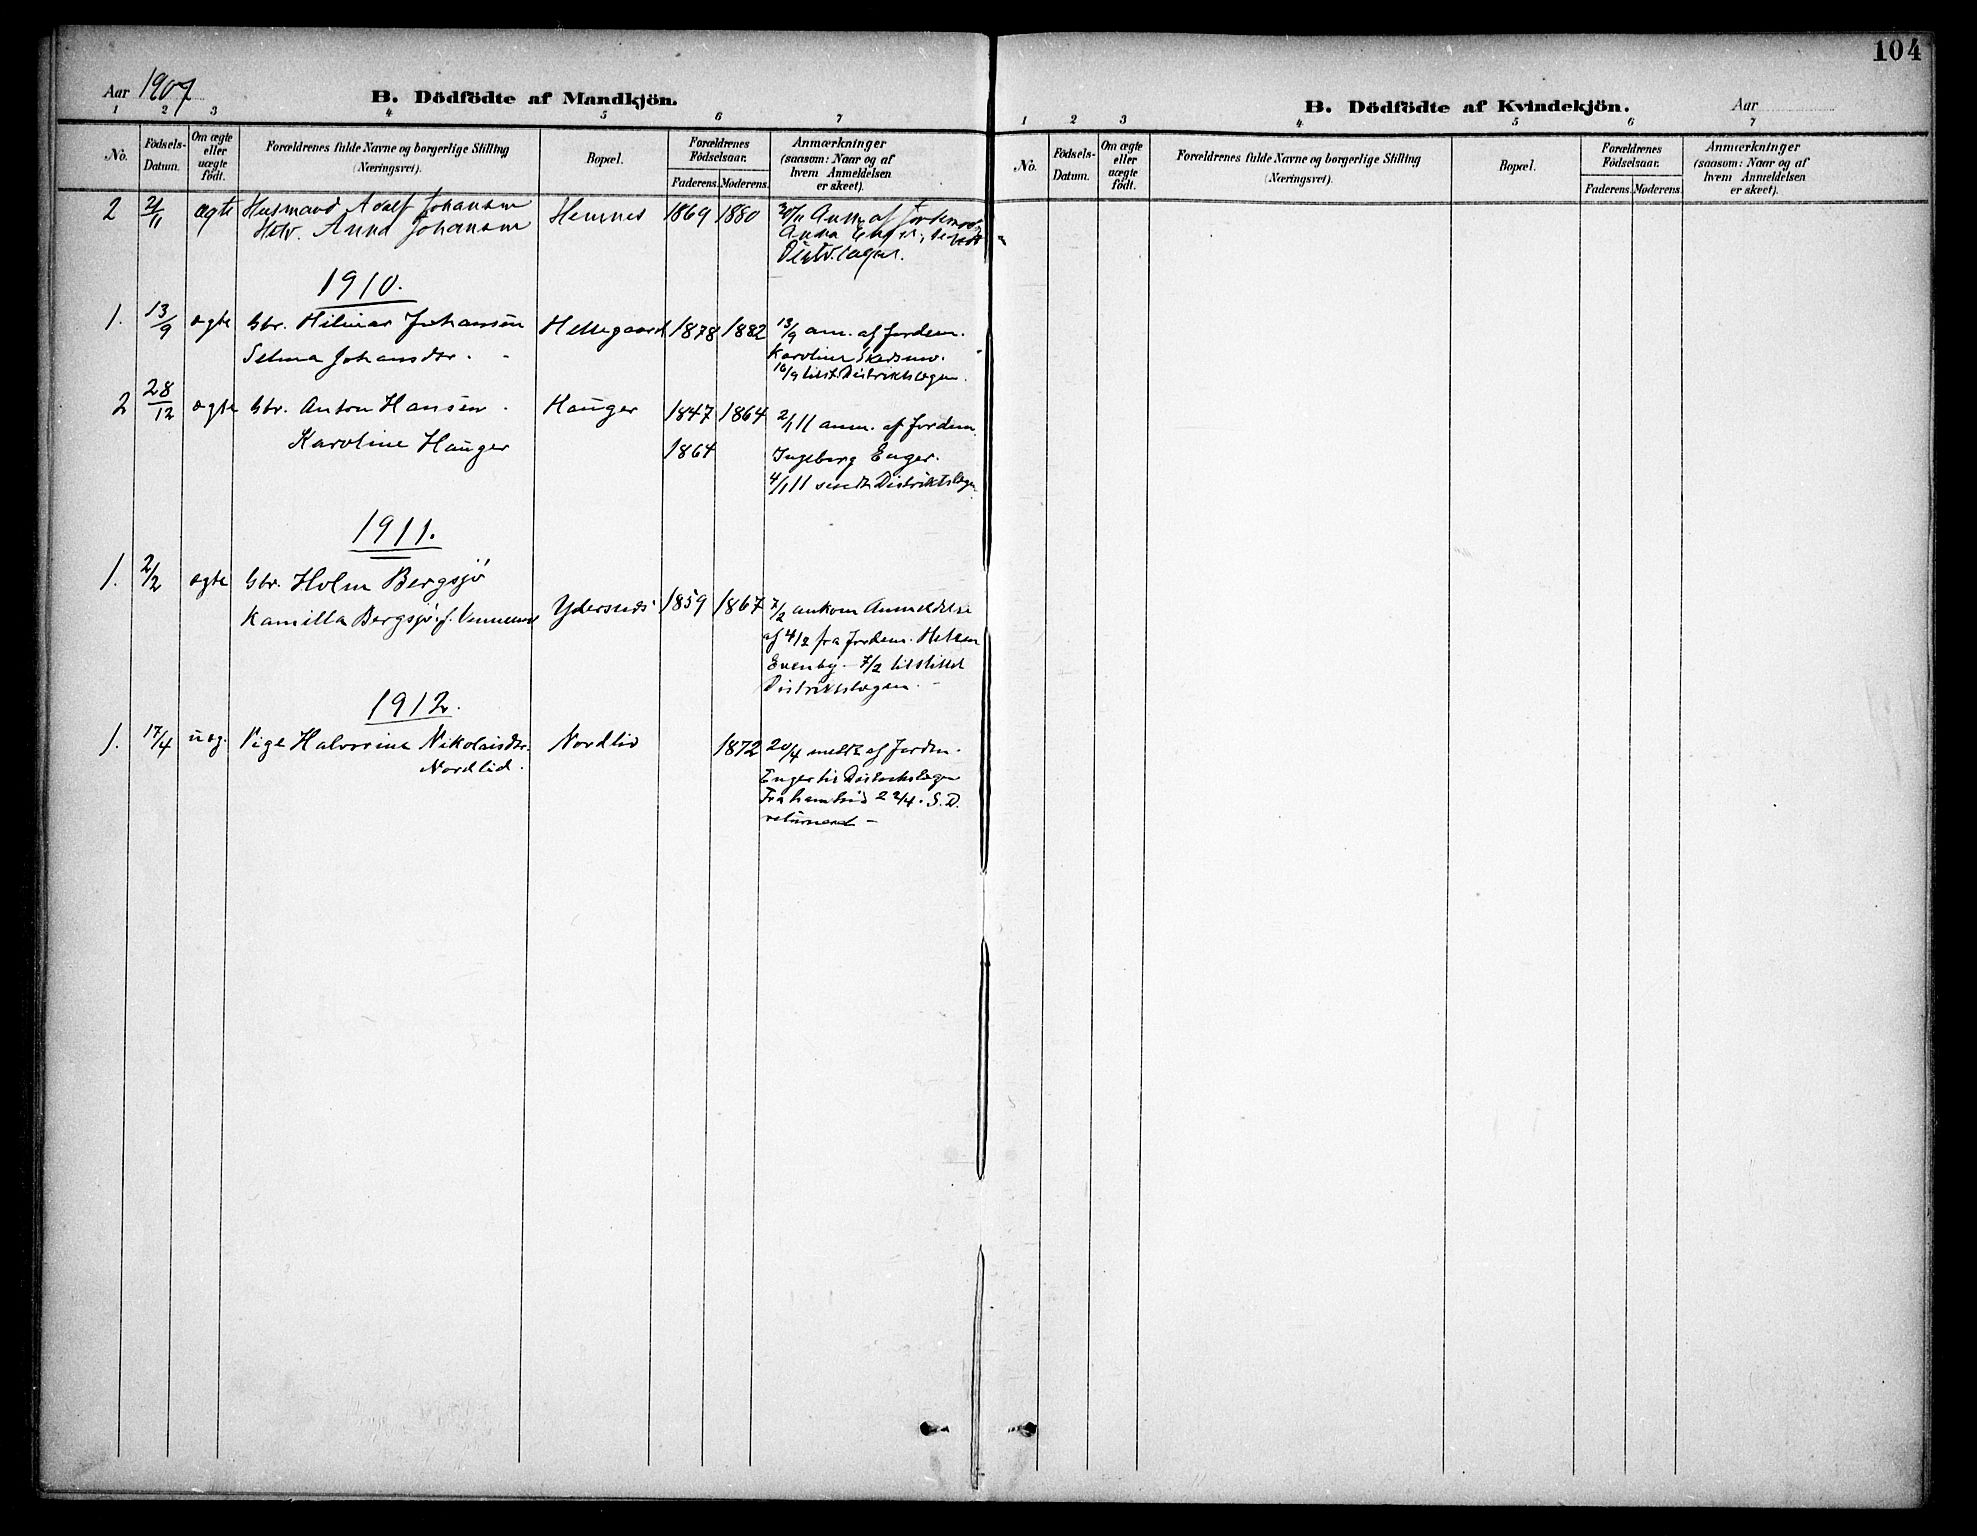 104
Aar 1907
B. Dödfödte af Mandkjön.
1 2 3 4 5 6 7
No. Födsels-Datum. Om ægte eller uægte födt. Forældrenes fulde Navne og borgerlige Stilling (Næringsvei). Bopæl. Forældrenes Födselsaar. Faderens. Moderens. Anmærkninger (saasom: Naar og af hvem Anmeldelsen er skeet).
2 21/11 ægte Husmand Adolf Johansen Hemnes 1869 1880 30/11 Anm. af Jordemod.
Hstr. Anna Johansen
Anna
Distr.lægen.
1910.
1. 13/9 ægte Gbr. Hilmar Johansen Hellegaard 1878 1882 13/9 anm. af Jordem.
Selma Johansdtr. Karoline
16/9 tilst. Distriktslægen.
2 28/12 ægte Gbr. Anton Hansen Hauger 1847 1864 2/1 11 anm. af Jordem.
Karoline Hauger 1864 Ingeborg Enger.
4/1 11 sendt Distriktslægen
1911.
1. 2/2 ægte Gbr. Holm Bergsjö
Kamilla Bergsjö f. Ydersnes 1859 1867 7/2 ankom Anmeldelse
af 4/2 fra Jordem.
Evenby. 7/2 tilstillet
Distriktslægen.
1912.
1. 17/4 uæg. Pige Halvorine Nikolaisdtr. Nordlid 1872 20/4 meldt af Jordem.
Nordlid.
Enger til Distriktslægen
Fra 22/4. S. D.
returneret
B. Dödfödte af Kvindekjön.
Aar
1 2 3 4 5 6 7
No. Födsels-Datum. Om ægte eller uægte födt. Forældrenes fulde Navne og borgerlige Stilling (Næringsvei). Bopæl. Forældrenes Födselsaar. Faderens. Moderens. Anmærkninger (saasom: Naar og af hvem Anmeldelsen er skeet).